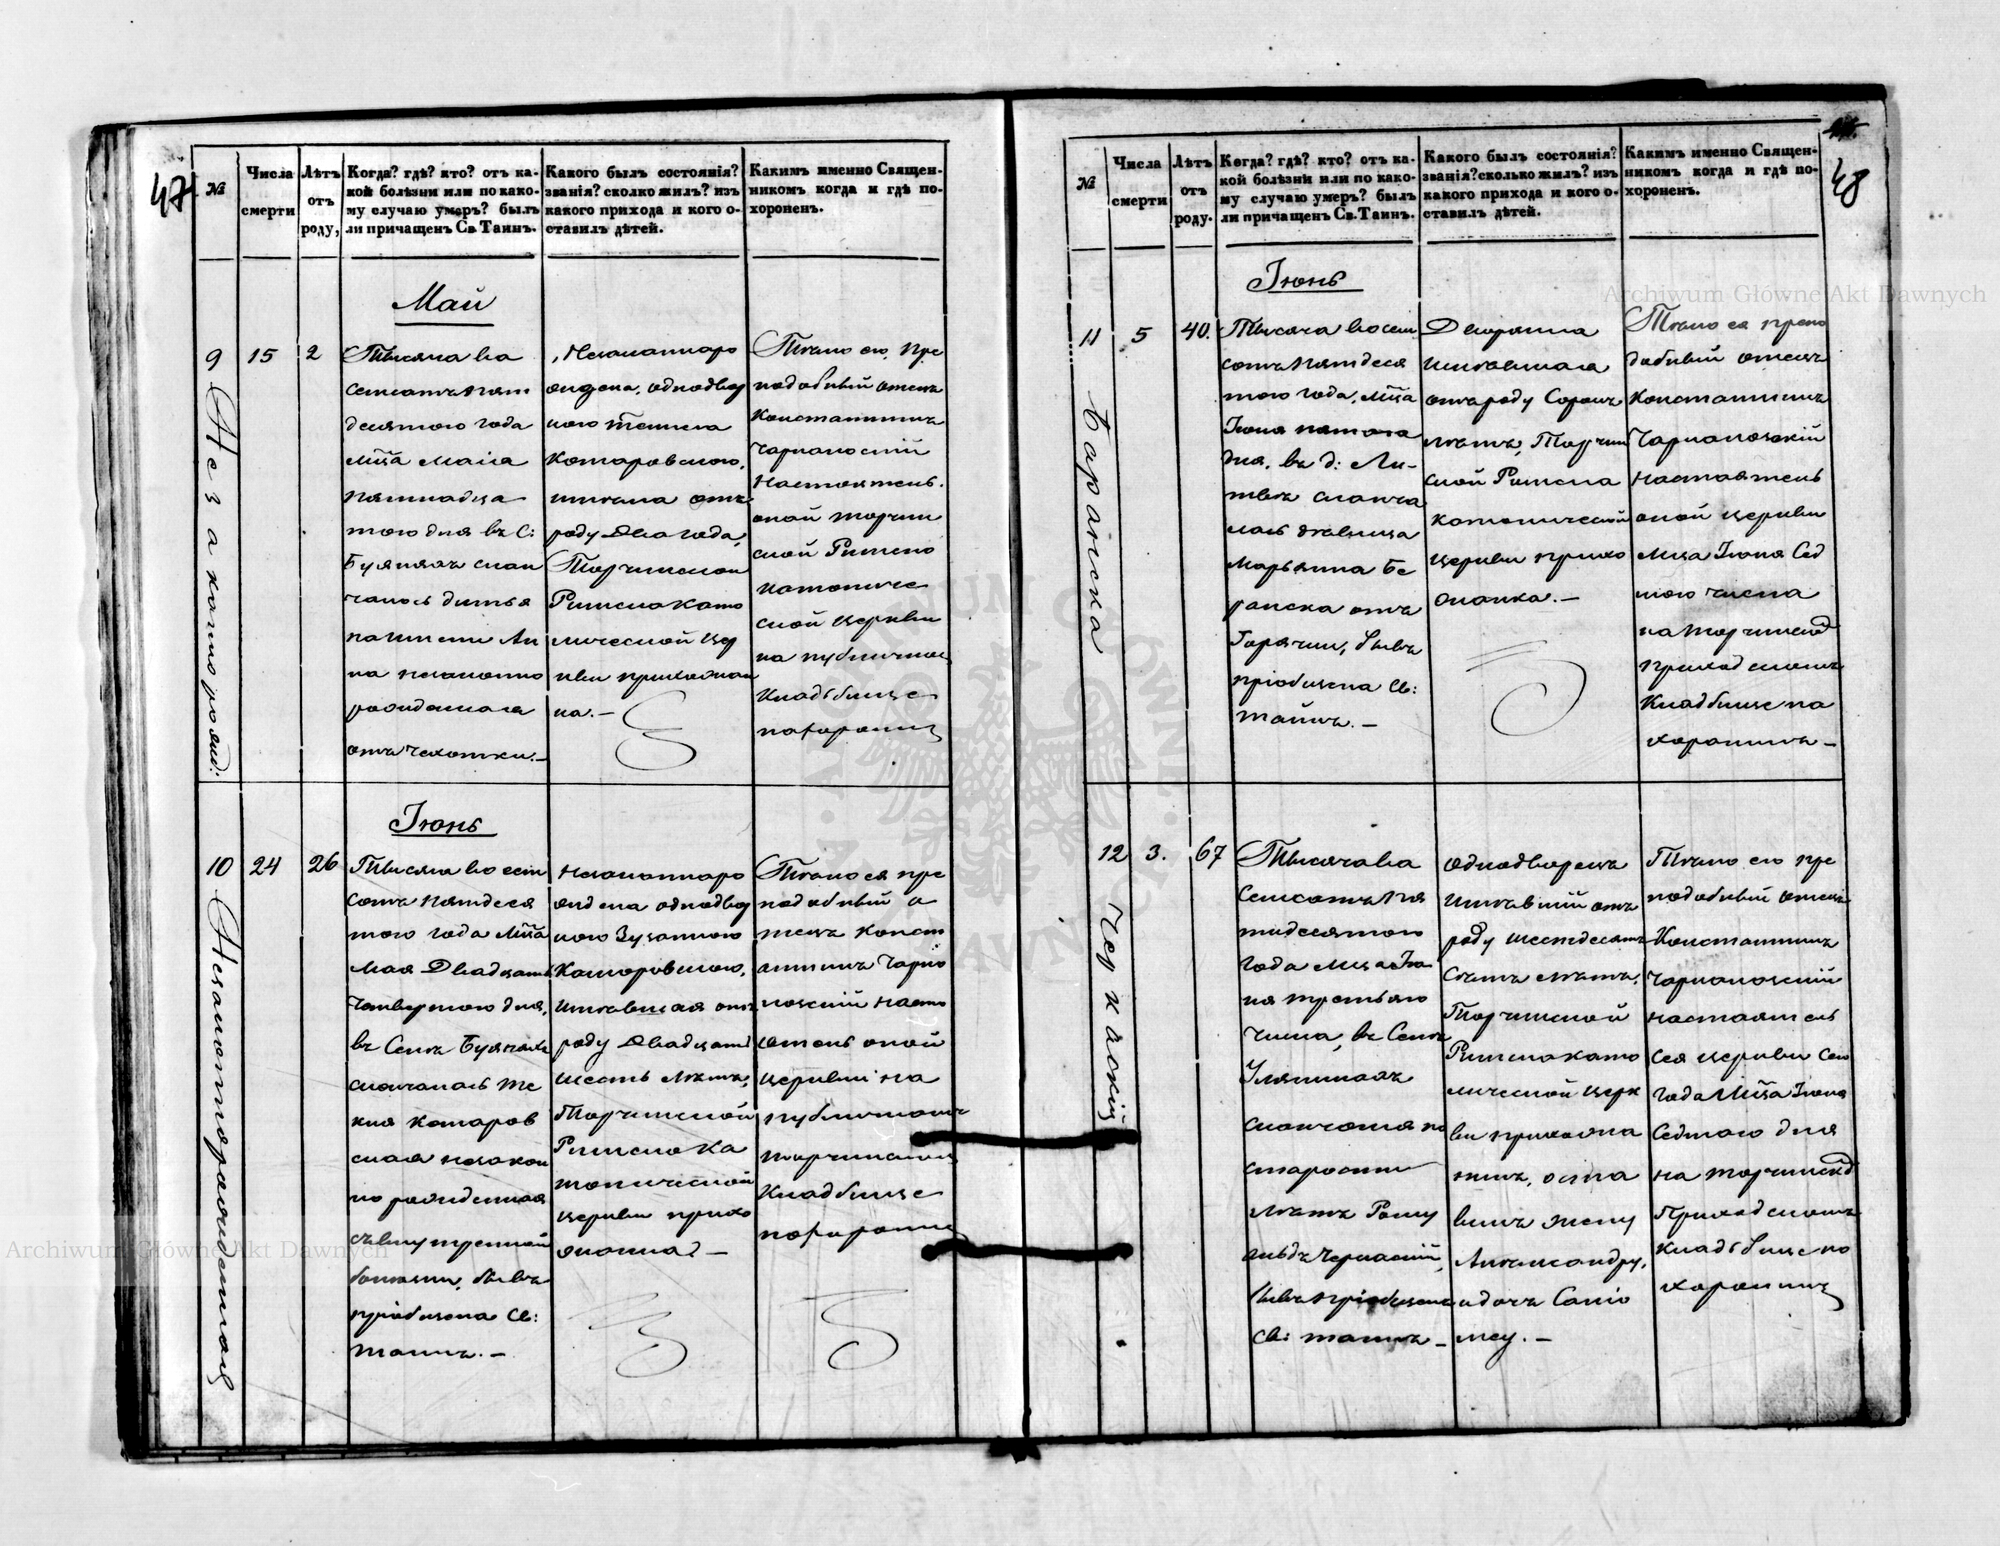 47
№
Числа
смерти
Лѣтъ
отъ
роду,
Когда? гдѣ? кто? отъ ка-
кой болѣзни или по како-
му случаю умеръ? былъ
ли причащенъ Св. Таинъ.
Какого былъ состоянія?
званія? сколько жилъ? изъ
какого прихода и кого о-
ставилъ дѣтей.
Какимъ именно Священ-
никомъ когда и гдѣ по-
хороненъ.
Май
9
15
2
Тысяча во
семсотъ пят
десятого года
Мца Маія
пятнадца
того дня въ С:
Буянахъ скон
чалось дитья
по имени Ан
на незаконно
рожденная
отъ чехотки.—
Незаконнаро
жденна, однодвор
кою
Комаровскою,
имѣла отъ
роду Два года,
Торчинской
Римскокато
лической цер
кви прихожан
ка.—
Тѣло его, пре
подобный отецъ
Константинъ
Настоятель
оной Торчин
ской Римско
католиче
ской церкви
на публичном
Кладбище
похоронилъ
Іюнь
10
24
26
Тысяча восем
сотъ пятдеся
того года Мца
Мая Двадцать
четвертого дня,
въ Селѣ Буянахъ
скончалась Те
кля Комаров
ская незакон
но рожденная
съ внутренной
болезни, бывъ
пріобщена Св:
Таинъ.—
Незаконнаро
ждена однодвор
кою Зузанною
Комаровскою,
имѣвшая отъ
роду Двадцать
шесть лѣтъ,
Торчинской
Римско Ка
толической
церкви прихо
жанка —
Тѣло ея пре
подобный о
тецъ Конст
антинъ
насто
ятель оной
церкви на
публичномъ
торчинскомъ
Кладбище
похоронилъ
48
№
Числа
смерти
Лѣтъ
отъ
роду.
Когда? гдѣ? кто? отъ ка-
кой болѣзни или по како-
му случаю умеръ? былъ
ли причащенъ Св. Таинъ.
Какого былъ состоянія?
званія? сколько жилъ? изъ
какого прихода и кого о-
ставилъ дѣтей.
Какимъ именно Священ-
никомъ когда и гдѣ по-
хороненъ.
Іюнь
11
Баранска
5
40.
Тысяча восем
сотъ пятдеся
того года, Мца
Іюня пятого
дня, въ д: Ли-
твѣ сконча
лась дѣвица
Марьянна Ба
ранска отъ
Горячки, бывъ
пріобщена Св:
Тайнъ.—
Дворянка
имѣвшая
отъ роду Сорокъ
лѣтъ, Торчин
ской Римско
католической
церкви прихо
жанка.—
Тѣло ея препо
добный отецъ
Константинъ
настоятель
оной церкви
Мца Іюня Сед
мого числа
на Торчинскомъ
приходскомъ
Кладбище по
хоронилъ—
12
3.
67
Тысяча во
семсотъ пя
тидесятого
года Мца Ію
ня третьяго
числа, въ Селѣ
Уляникахъ
скончался по
старости
лѣтъ Рому
альдъ
бывъ пріобщенъ
Св: таинъ —
однодворецъ
имѣвшій отъ
роду шестдесятъ
семь лѣтъ,
Торчинской
Римскокато
лической церк
ви прихожа
нинъ, оста
вилъ жену
Александру,
и дочь Сало
мею.—
Тѣло его пре
подобный отецъ
Константинъ
настоятель
сея церкви сего
года Мца Іюня
Седмого дня
на торчинскомъ
Приходскомъ
кладбище по
хоронилъ
Archiwum Główne Akt Dawnych
Archiwum Główne Akt Dawnych